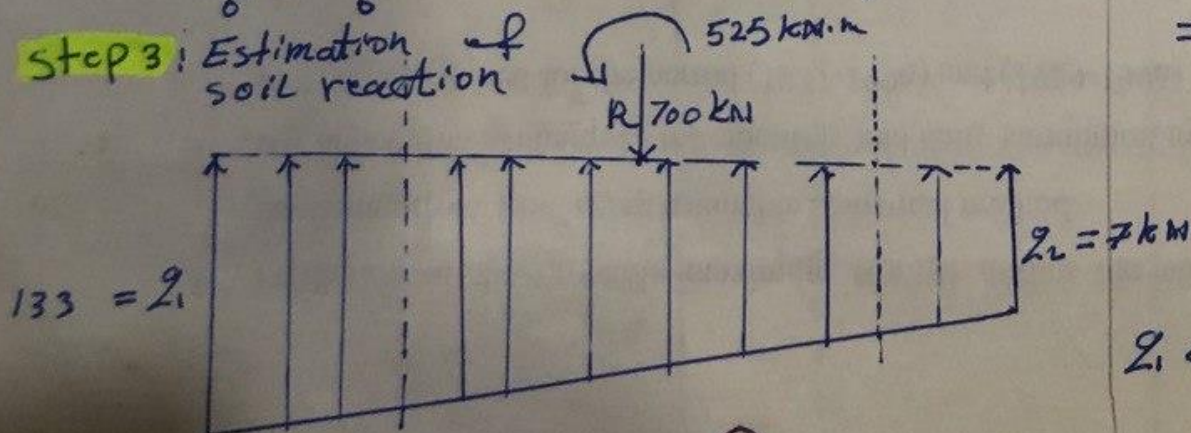 Step 3: Estimation of
soil reaction
525 kN.m
R 700 kN
133 = q₁
q₂ = 7 kN
q₁
=